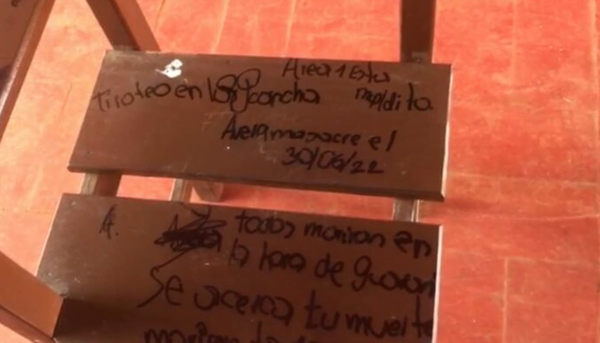 Area 1 Esta
Tiroteo en la cancha maldita
Avera masacre el
30/06/22
A. todos moriran en
la hora de guarani
Se acerca tu muerte